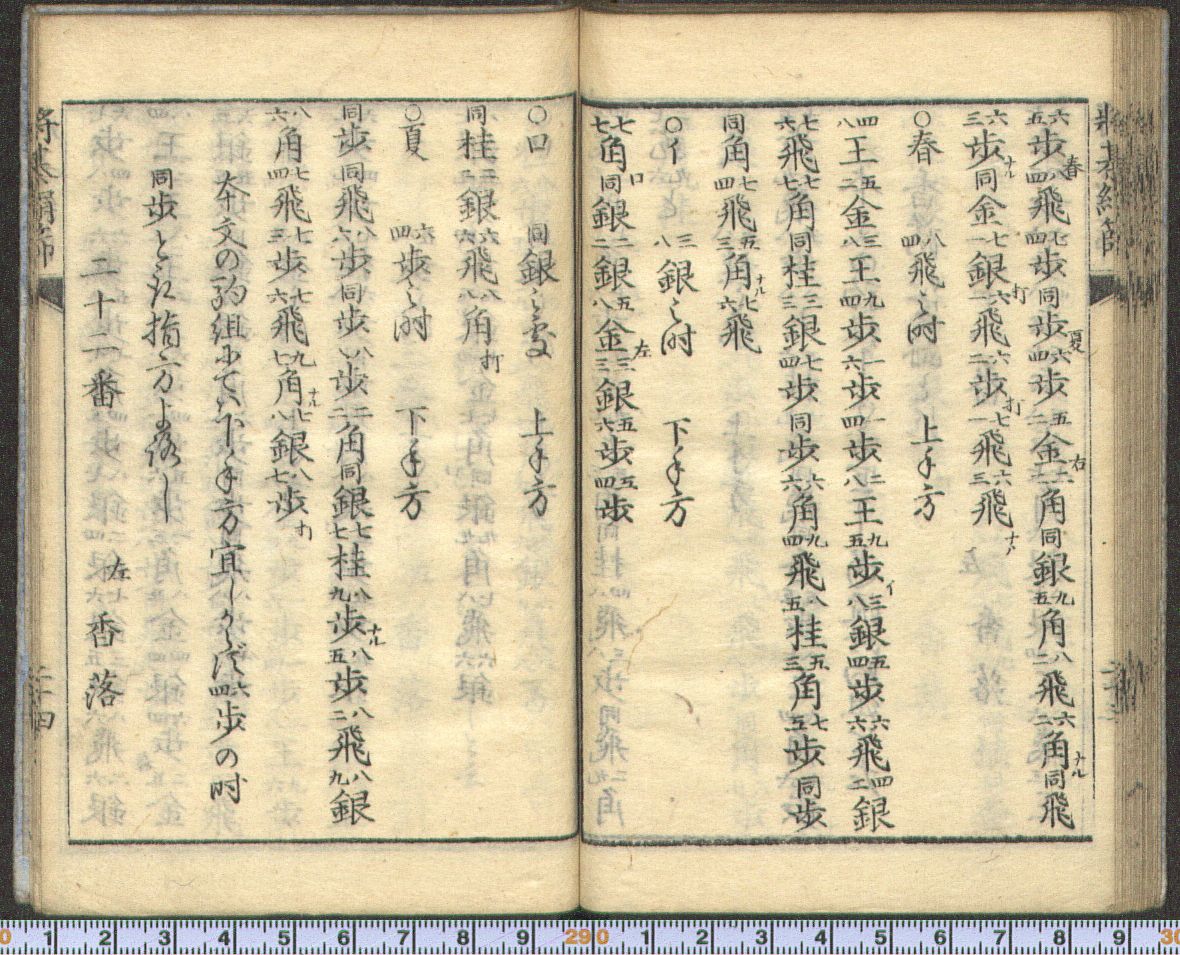 将棊絹篩 二十三
六五歩 春 八四飛 七四歩 同歩 夏 六四歩 五二金 右 六二角 同銀 九五角 八二飛 六二角 ナル 同飛
六三歩 ナル 同金 七一銀 打 六一飛 六二歩 打 七一飛 六三飛 ナル
○春 八四飛之时 上手方
四八王 五二金 三八王 九四歩 一六歩 一四歩 二八王 九五歩 イ 三八銀 五四歩 六六飛 四二銀
七六飛 七七角 同桂 三三銀 七四歩 同歩 六六角 九四飛 八五桂 五三角 七五歩 同歩
同角 七四飛 五三角 ナル 七六飛
○イ 三八銀之时 下手方
七七角 ロ 同銀 二二銀 五八金 左 三三銀 五六歩 五四歩
○ロ 同銀之処 上手方
同桂 二二銀 六六飛 八八角 打
○夏 六四歩之时 下手方
同歩 同飛 八六歩 同歩 八八歩 二二角 同銀 七七桂 八九歩 ナル 八五歩 八二飛 八九銀
八六角 七四飛 七三歩 七六飛 九七角 ナル 七八銀 八七歩 打
本文の駒組にてハ下手方宜しからず六四歩の时
同歩と取指方よろし
二十二番 左香落
将棊絹篩 二十四